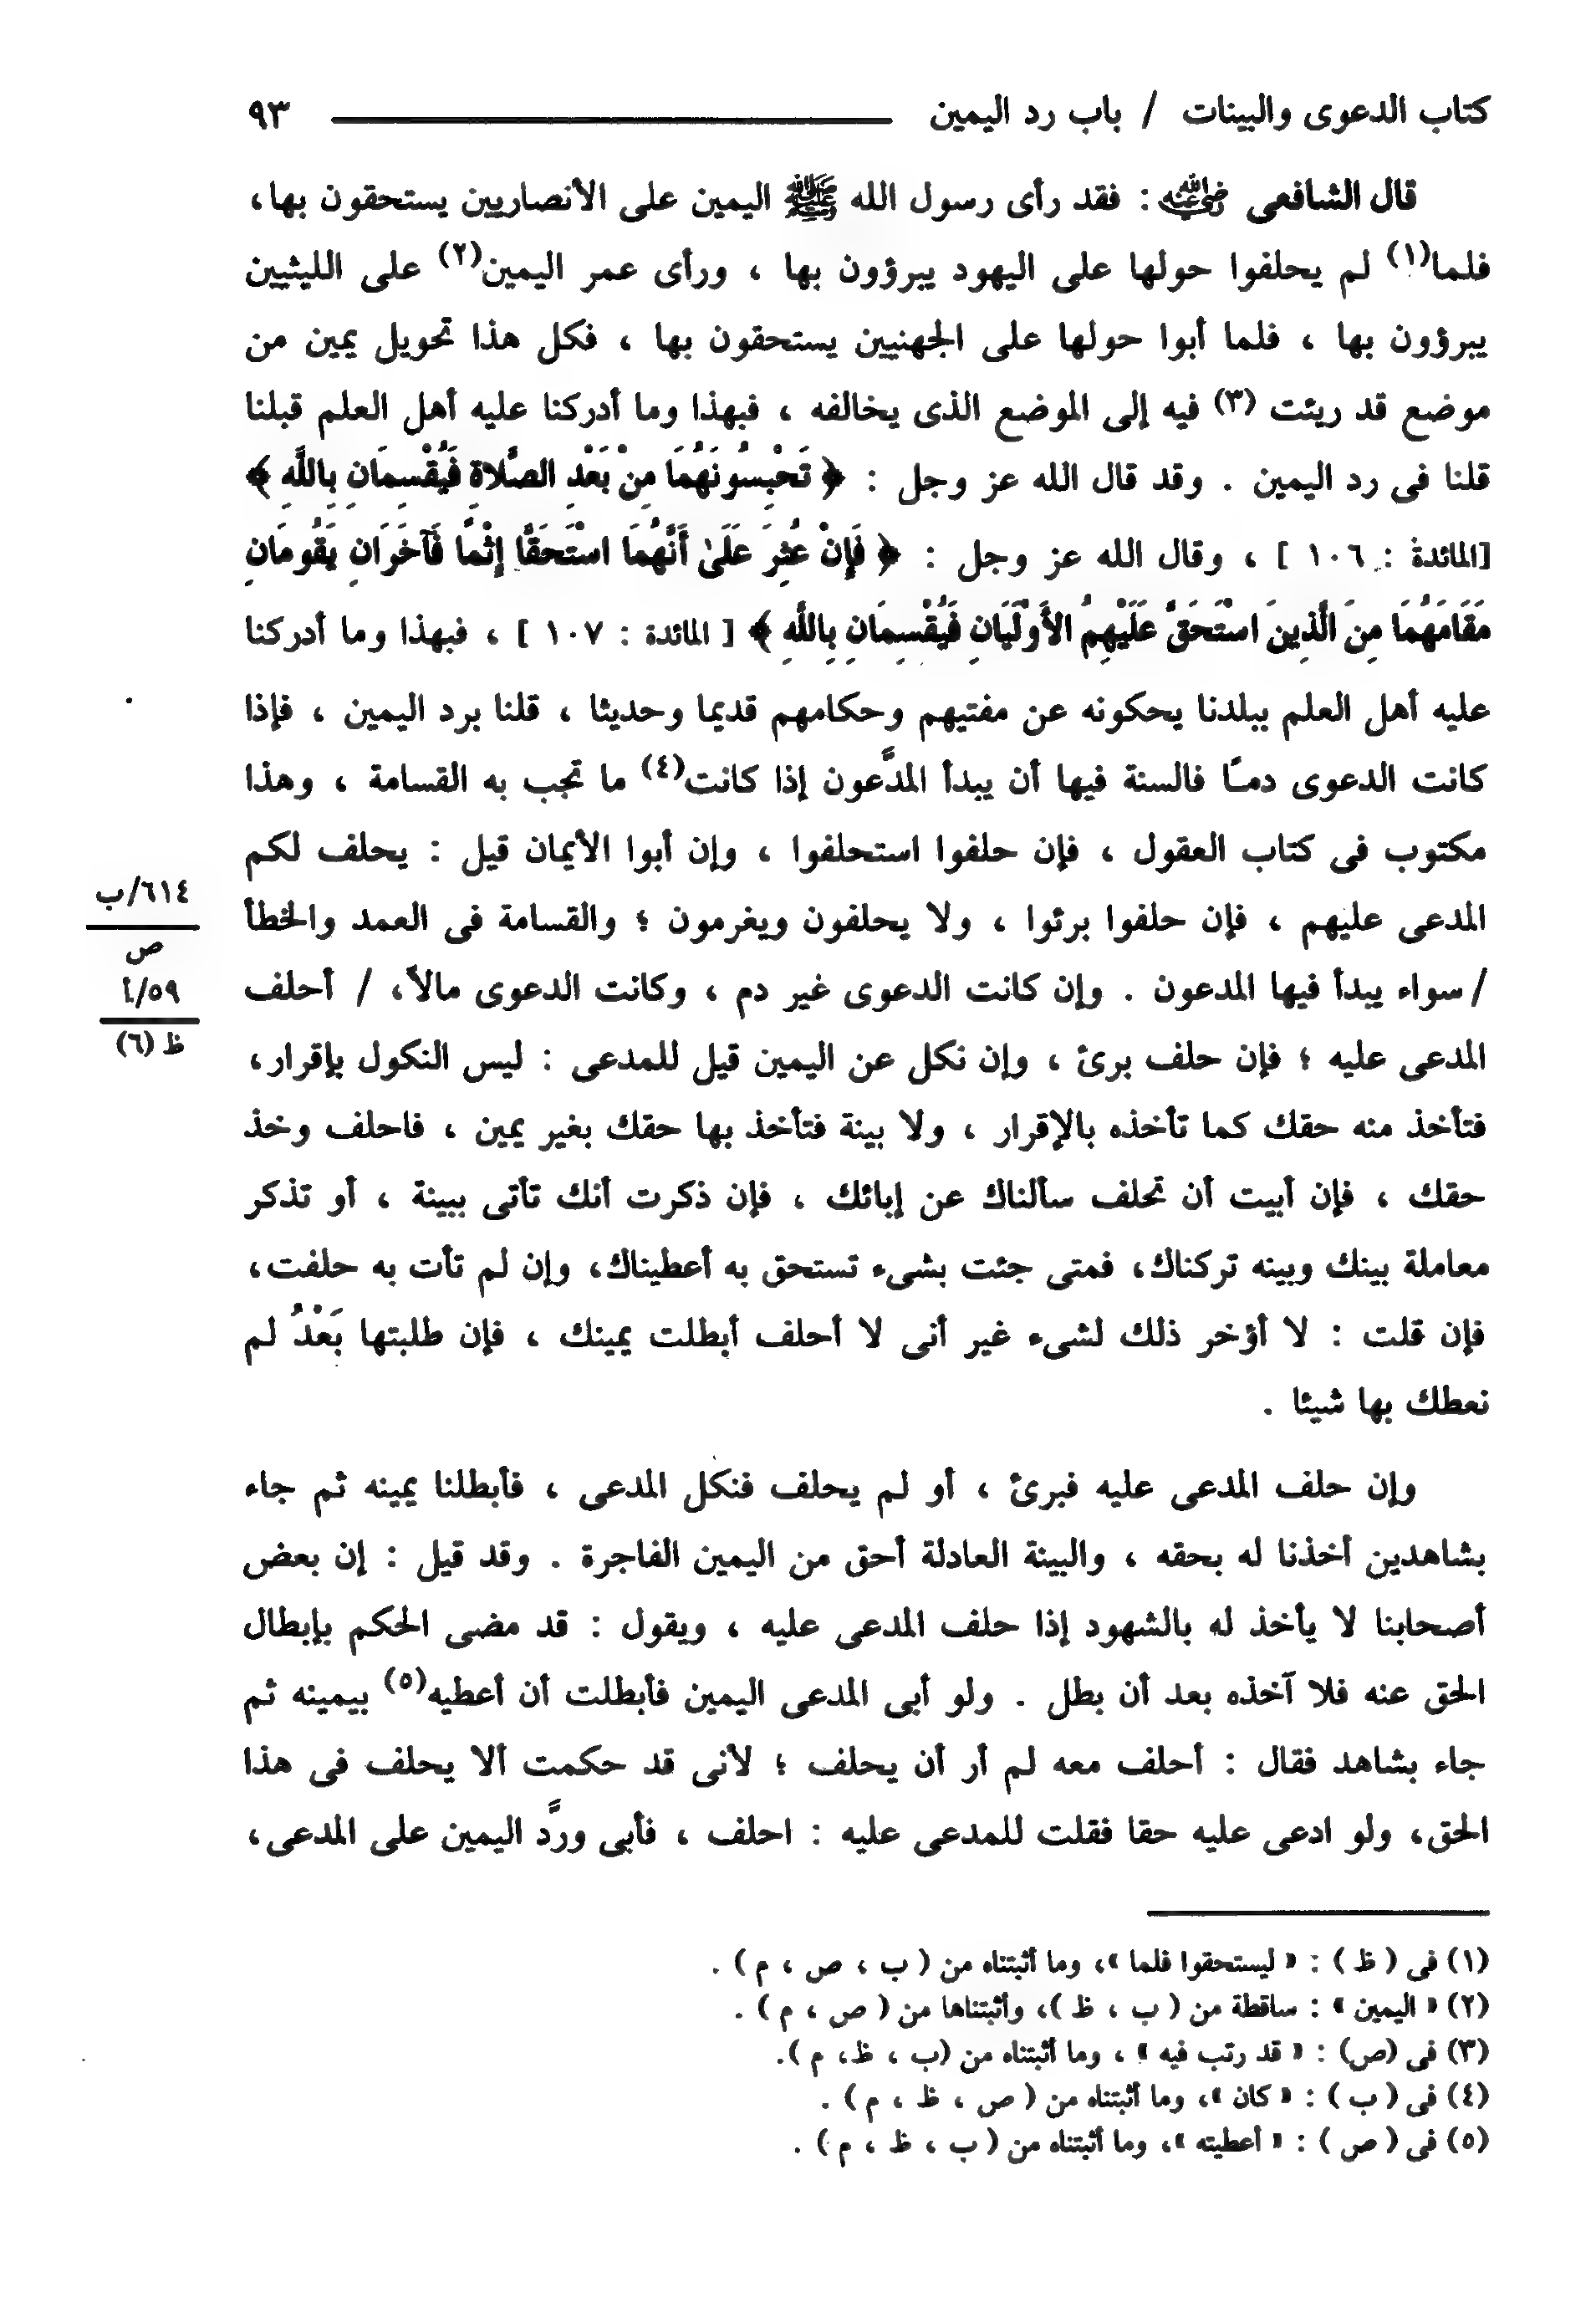 كتاب الدعوى والبينات / باب رد اليمين ٩٣
قال الشافعى رضي الله عنه : فقد رأى رسول الله ﷺ اليمين على الأنصاريين يستحقون بها،
فلما(١) لم يحلفوا حولها على اليهود يبرؤون بها ، ورأى عمر اليمين(٢) على الليثيين
يبرؤون بها ، فلما أبوا حولها على الجهنيين يستحقون بها ، فكل هذا تحويل يمين من
موضع قد ريئت (٣) فيه إلى الموضع الذى يخالفه ، فبهذا وما أدركنا عليه أهل العلم قبلنا
قلنا فى رد اليمين . وقد قال الله عز وجل : ﴿ تَحْبِسُونَهُمَا مِنْ بَعْدِ الصَّلاةِ فَيُقْسِمَانِ بِاللَّهِ ﴾
[المائدة : ١٠٦ ] ، وقال الله عز وجل : ﴿ فَإِنْ عُثِرَ عَلَىٰ أَنَّهُمَا اسْتَحَقَّا إِثْمًا فَآخَرَانِ يَقُومَانِ
مَقَامَهُمَا مِنَ الَّذِينَ اسْتَحَقَّ عَلَيْهِمُ الأَوْلَيَانِ فَيُقْسِمَانِ بِاللَّهِ ﴾ [ المائدة : ١٠٧ ] ، فبهذا وما أدركنا
عليه أهل العلم ببلدنا يحكونه عن مفتيهم وحكامهم قديما وحديثا ، قلنا برد اليمين ، فإذا
كانت الدعوى دمـًا فالسنة فيها أن يبدأ المدَّعون إذا كانت(٤) ما تجب به القسامة ، وهذا
مكتوب فى كتاب العقول ، فإن حلفوا استحلفوا ، وإن أبوا الأيمان قيل : يحلف لكم
المدعى عليهم ، فإن حلفوا برئوا ، ولا يحلفون ويغرمون ؛ والقسامة فى العمد والخطأ
/ سواء يبدأ فيها المدعون . وإن كانت الدعوى غير دم ، وكانت الدعوى مالاً، / أحلف
المدعى عليه ؛ فإن حلف برئ ، وإن نكل عن اليمين قيل للمدعى : ليس النكول بإقرار،
فتأخذ منه حقك كما تأخذه بالإقرار ، ولا بينة فتأخذ بها حقك بغير يمين ، فاحلف وخذ
حقك ، فإن أبيت أن تحلف سألناك عن إبائك ، فإن ذكرت أنك تأتى ببينة ، أو تذكر
معاملة بينك وبينه تركناك، فمتى جئت بشىء تستحق به أعطيناك، وإن لم تأت به حلفت،
فإن قلت : لا أؤخر ذلك لشىء غير أنى لا أحلف أبطلت يمينك ، فإن طلبتها بَعْدُ لم
نعطك بها شيئا .
وإن حلف المدعى عليه فبرئ ، أو لم يحلف فنكل المدعى ، فأبطلنا يمينه ثم جاء
بشاهدين أخذنا له بحقه ، والبينة العادلة أحق من اليمين الفاجرة . وقد قيل : إن بعض
أصحابنا لا يأخذ له بالشهود إذا حلف المدعى عليه ، ويقول : قد مضى الحكم بإبطال
الحق عنه فلا آخذه بعد أن بطل . ولو أبى المدعى اليمين فأبطلت أن أعطيه(٥) بيمينه ثم
جاء بشاهد فقال : أحلف معه لم أر أن يحلف ؛ لأنى قد حكمت ألا يحلف فى هذا
الحق، ولو ادعى عليه حقا فقلت للمدعى عليه : احلف ، فأبى وردَّ اليمين على المدعى،
٦١٤/ب
ص
٥٩/أ
ظ (٦)
(١) فى ( ظ ) : « ليستحقوا فلما »، وما أثبتناه من ( ب ، ص ، م ) .
(٢) « اليمين » : ساقطة من ( ب ، ظ )، وأثبتناها من ( ص ، م ) .
(٣) فى (ص) : « قد رتب فيه » ، وما أثبتناه من (ب ، ظ، م ).
(٤) فى ( ب ) : « كان »، وما أثبتناه من ( ص ، ظ ، م ) .
(٥) فى ( ص ) : « أعطيته »، وما أثبتناه من ( ب ، ظ ، م ) .